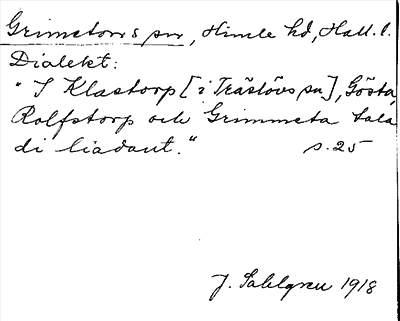 Grimetons sn, Himle hd, Hall. l.
Dialekt:
"I Klastorp [i Träslövs sn], Gösta,
Rolfstorp och Grimmeta tala
di liadant." s. 25
J. Sahlgren 1918